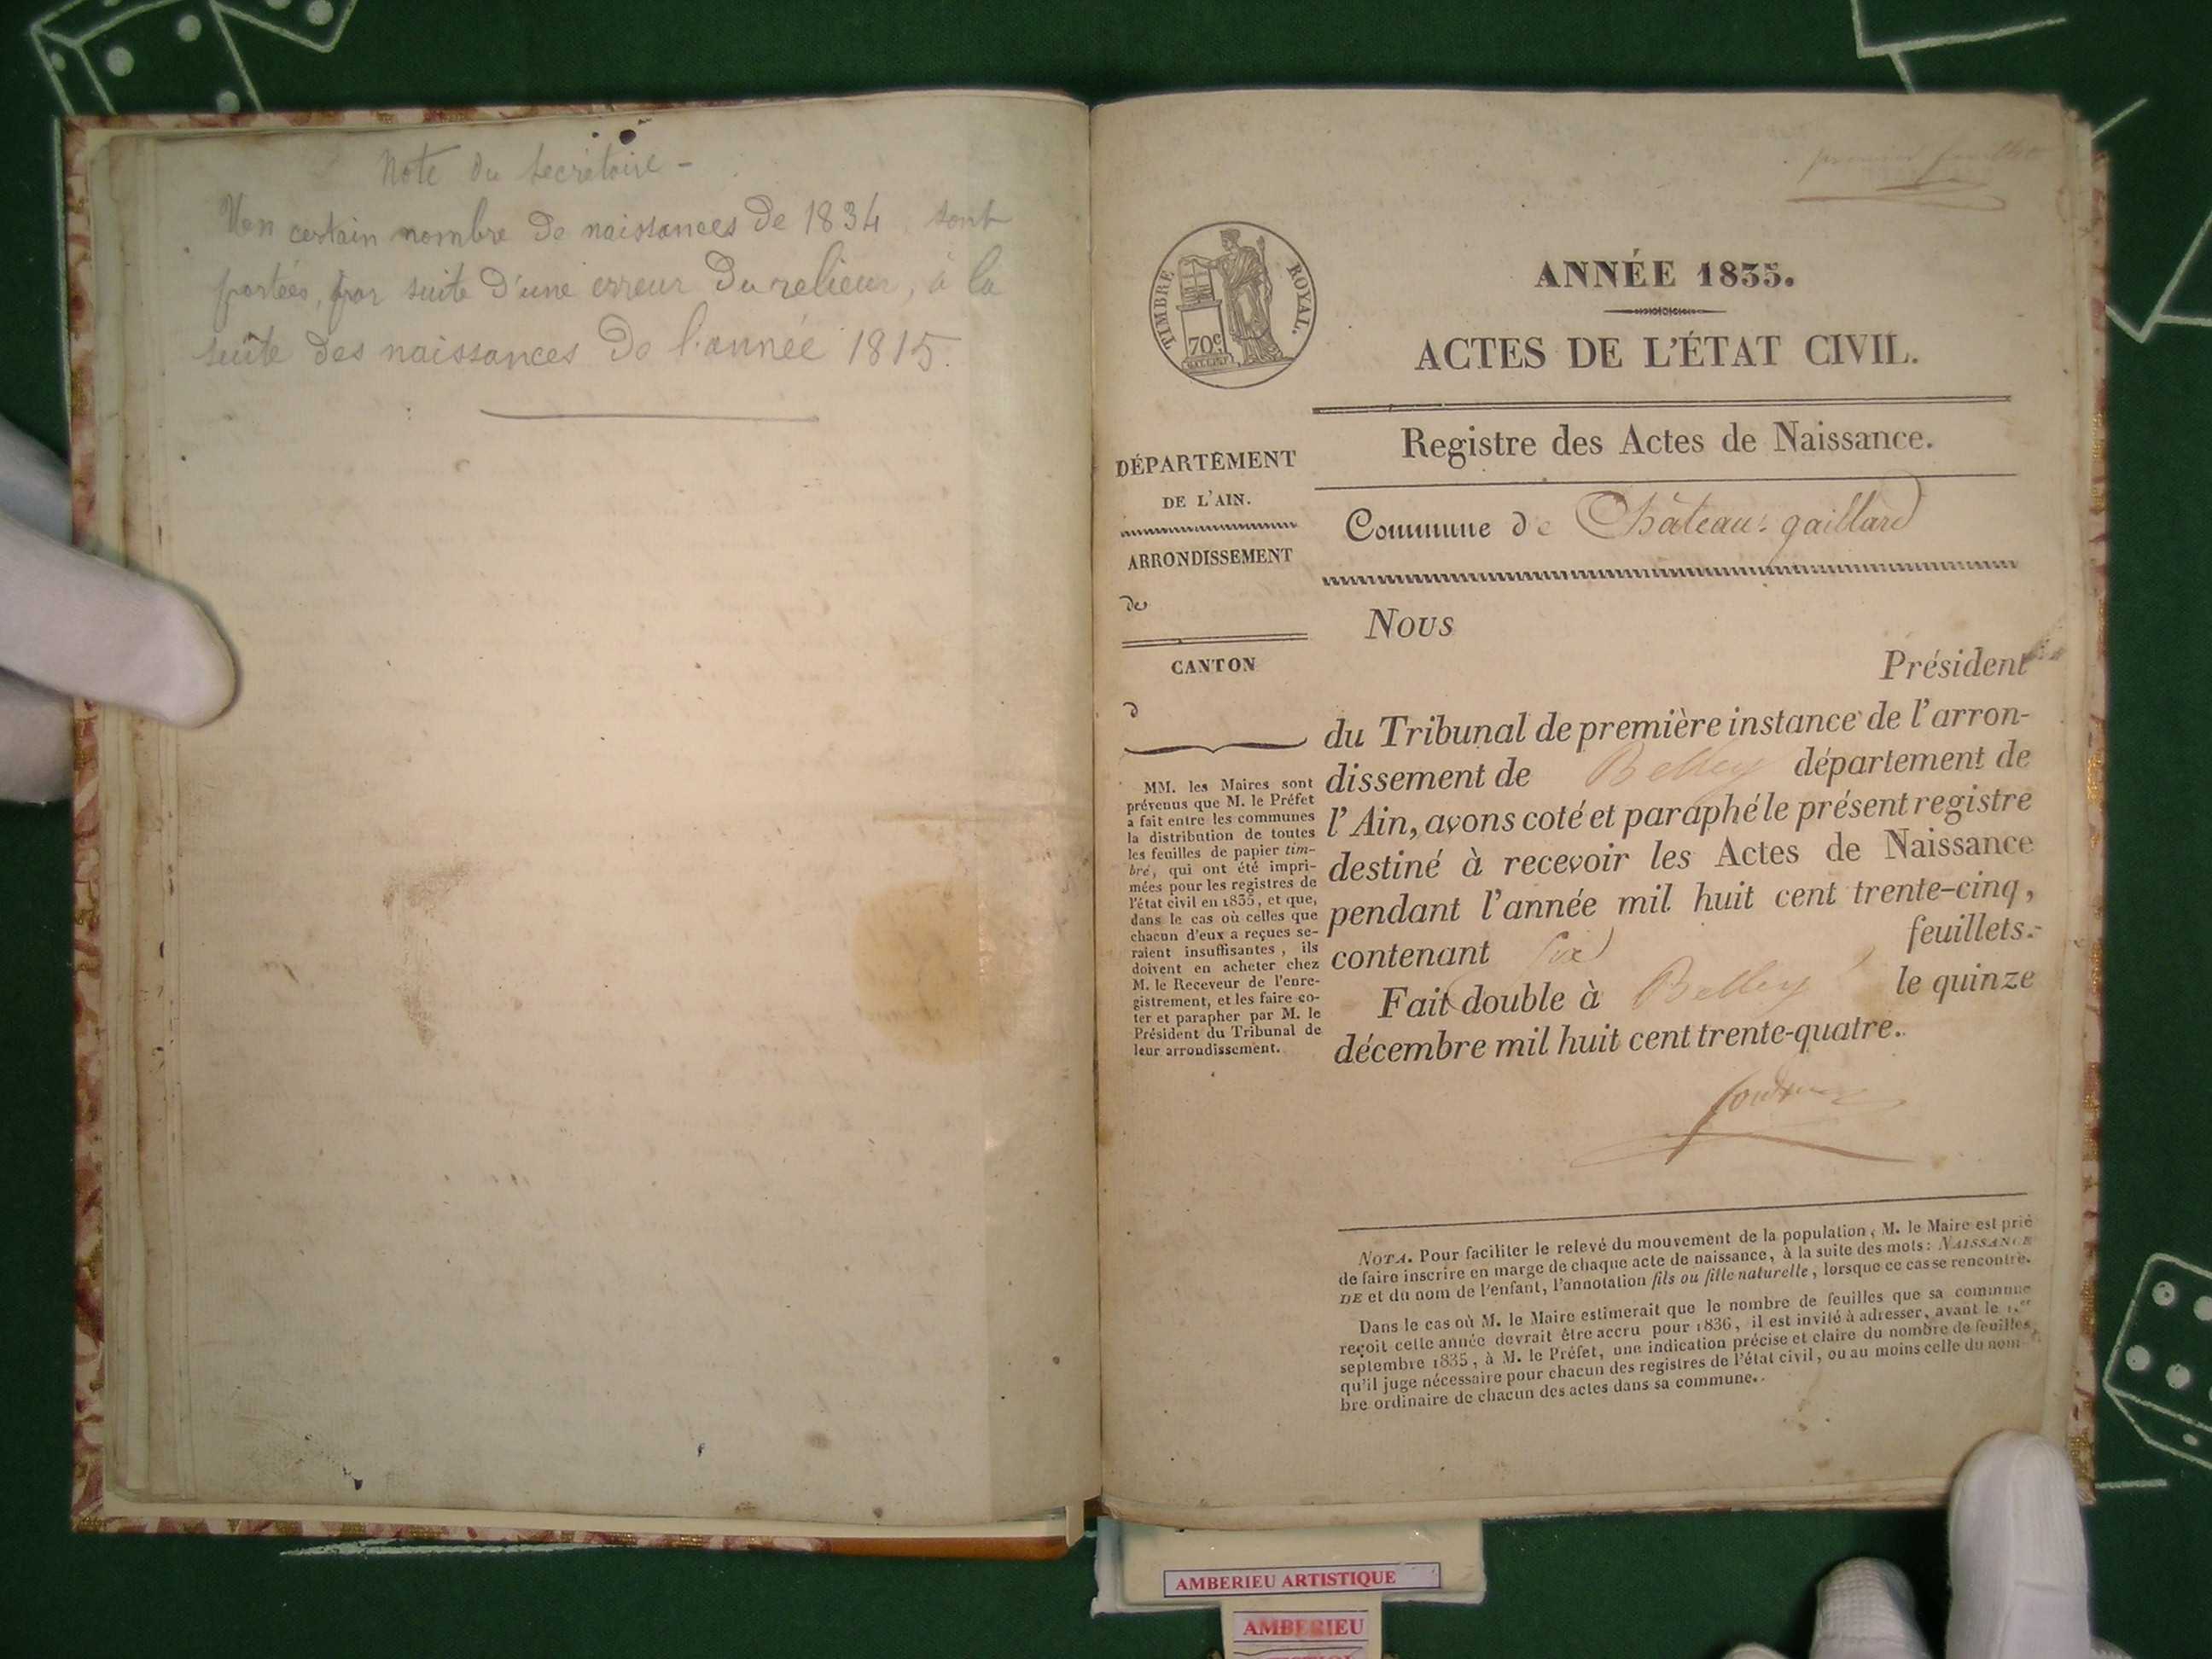 Note du Secrétaire -
Un certain nombre de naissances de 1834 sont
portées, par suite d'une erreur du relieur, à la
suite des naissances de l'année 1815.
premier feuillet
TIMBRE ROYAL.
70c
ANNÉE 1835.
ACTES DE L'ÉTAT CIVIL.
Registre des Actes de Naissance.
DÉPARTEMENT
DE L'AIN.
ARRONDISSEMENT
de
CANTON
d
MM. les Maires sont
prévenus que M. le Préfet
a fait entre les communes
la distribution de toutes
les feuilles de papier tim-
bré, qui ont été impri-
mées pour les registres de
l'état civil en 1835, et que,
dans le cas où celles que
chacun d'eux a reçues se-
raient insuffisantes, ils
doivent en acheter chez
M. le Receveur de l'enre-
gistrement, et les faire co-
ter et parapher par M. le
Président du Tribunal de
leur arrondissement.
Commune de Château-gaillard
Nous
Président
du Tribunal de première instance de l'arron-
dissement de Belley département de
l'Ain, avons coté et paraphé le présent registre
destiné à recevoir les Actes de Naissance
pendant l'année mil huit cent trente-cinq,
contenant six feuillets.
Fait double à Belley le quinze
décembre mil huit cent trente-quatre.
NOTA. Pour faciliter le relevé du mouvement de la population, M. le Maire est prié
de faire inscrire en marge de chaque acte de naissance, à la suite des mots: NAISSANCE
DE et du nom de l'enfant, l'annotation fils ou fille naturelle, lorsque ce cas se rencontre.
Dans le cas où M. le Maire estimerait que le nombre de feuilles que sa commune
reçoit cette année devrait être accru pour 1836, il est invité à adresser, avant le 1.er
septembre 1835, à M. le Préfet, une indication précise et claire du nombre de feuilles
qu'il juge nécessaire pour chacun des registres de l'état civil, ou au moins celle du nom-
bre ordinaire de chacun des actes dans sa commune.
AMBERIEU ARTISTIQUE
AMBERIEU